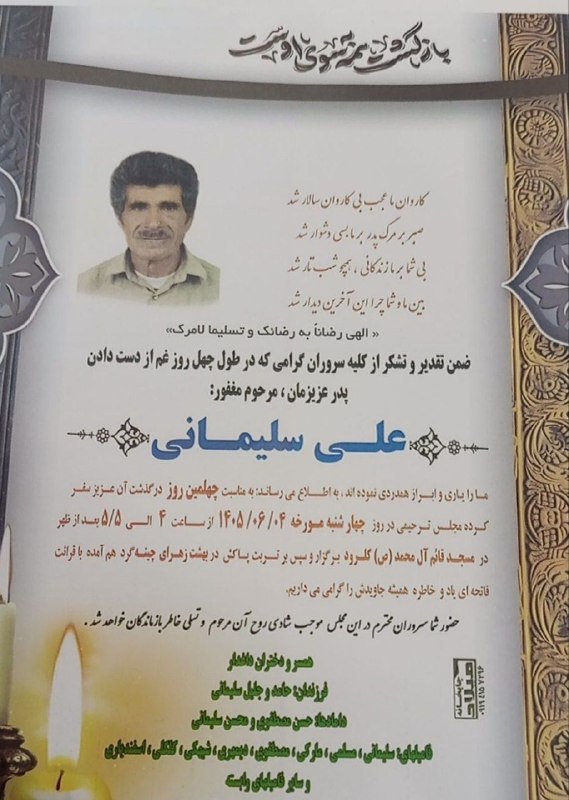 بازگشت همه بسوی اوست
کاروان ما عجب بی کاروان سالار شد
صبر بر مرگ پدر بر ما بسی دشوار شد
بی شما بر ما زندگانی ، همچو شب تار شد
بین ما و شما چرا این آخرین دیدار شد
« الهی رضاناً به رضائک و تسلیما لامرک»
ضمن تقدیر و تشکر از کلیه سروران گرامی که در طول چهل روز غم از دست دادن
پدر عزیزمان ، مرحوم مغفور:
علی سلیمانی
ما را یاری و ابراز همدردی نموده اند ، به اطلاع می رساند: به مناسبت چهلمین روز درگذشت آن عزیز سفر
کرده مجلس ترحیمی در روز چهار شنبه مورخه ۱۴۰۵/۰۶/۰۴ از ساعت ۴ الی ۵/۵ بعد از ظهر
در مسجد قائم آل محمد (ص) کلرود برگزار و سپس بر تربت پاکش در بهشت زهرای چینه گرد هم آمده با قرائت
فاتحه ای یاد و خاطره همیشه جاویدش را گرامی می داریم.
حضور شما سروران محترم در این مجلس موجب شادی روح آن مرحوم و تسلی خاطر بازماندگان خواهد شد .
همسر و دختران داغدار
فرزندان: حامد و جلیل سلیمانی
دامادها: حسن مصطفوی و محسن سلیمانی
فامیلهای: سلیمانی ، مسلمی ، مارکی ، مصطفوی ، شهکی ، کلکلی ، اسفندیاری
و سایر فامیلهای وابسته
چاپخانه
میلاد
۰۹۱۱۹ ۴۱۵ ۷۲۹۶